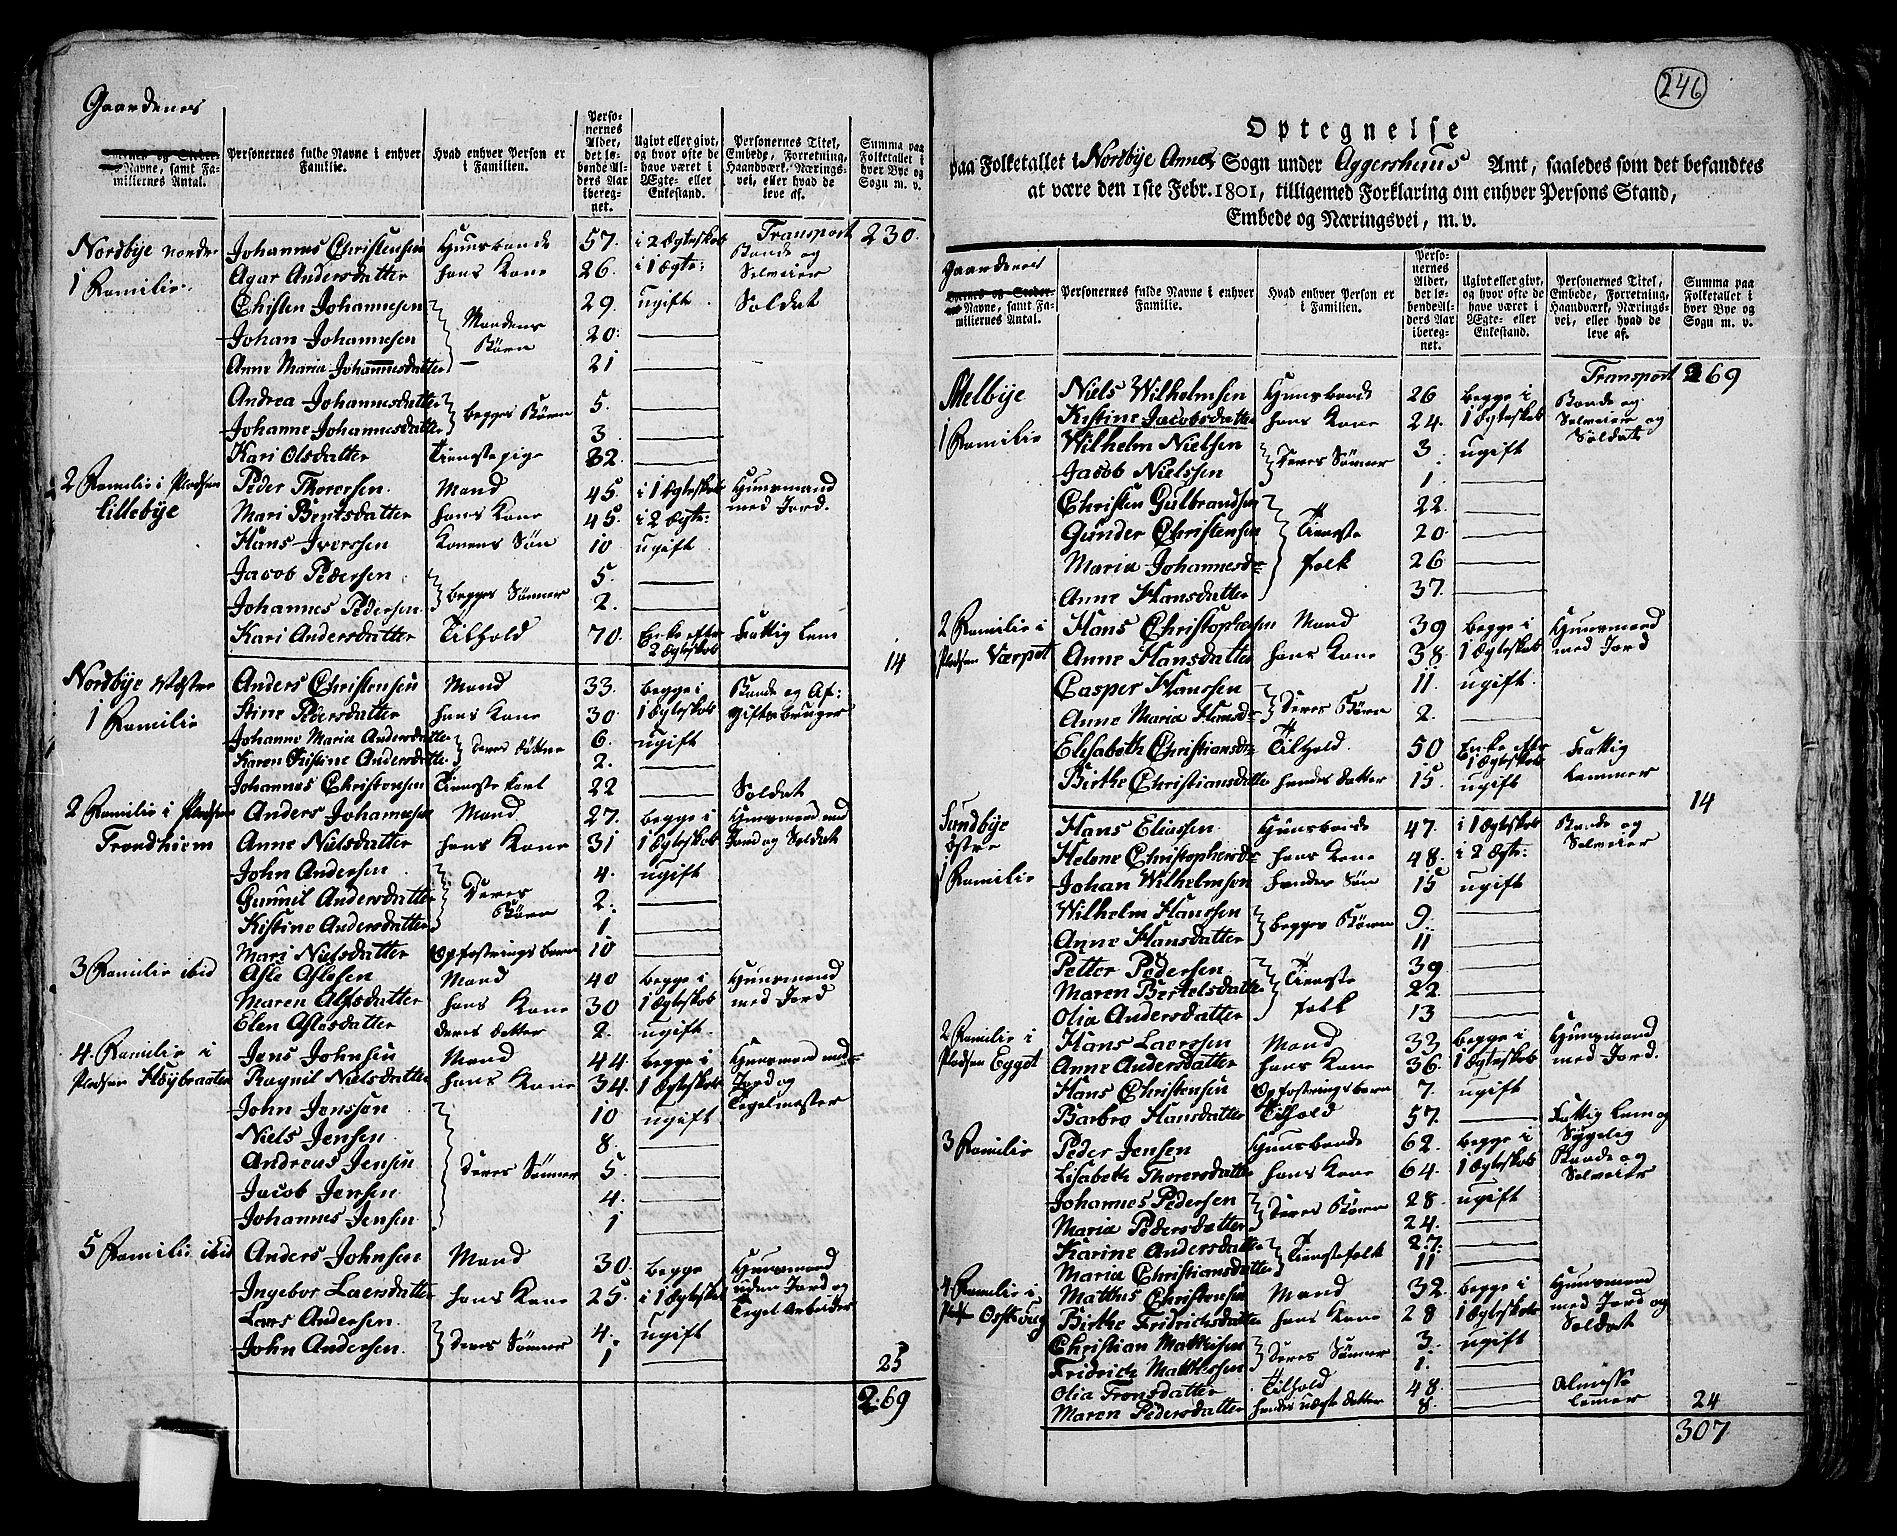 Gaardenes
Byernes og Stedernes Navne, samt Familiernes Antal.
Personernes fulde Navne i enhver Familie.
Hvad enhver Person er i Familien.
Personernes Alder, det løbende Alders Aar iberegnet.
Ugivt eller givt, og hvor ofte de have været i Ægte- eller Enkestand.
Personernes Titel, Embede, Forretning, Haandværk, Næringsvei, eller hvad de leve af.
Summa paa Folketallet i hver Bye og Sogn m. v.
Transport 230.
Nordbye nordre Johannes Christensen Huusbonde 57. i 2 Ægteskab Bonde og
1 Familie. Agar Andersdatter hans Kone 26. i 1 Ægte: Selveier
Christen Johannesen 29 ugift Soldat
Johan Johannesen Mandens Børn 20.
Anne Maria Johannesdatter 21
Andrea Johannesdatter begges Børn 5.
Johanne Johannesdatter 3.
Kari Olsdatter Tienestepige 32.
2 Familie i Pladsen Peder Thorersen Mand 45. i 1 Ægteskab Huusmand
Lillebye Mari Berntsdatter hans Kone 45. i 2 Ægte: med Jord.
Hans Iverssen Konens Søn 10 ugift
Jacob Pedersen 5.
Johannes Pedersen begges Sønner 2.
Kari Andersdatter Tilhold 70. Enke efter 2 Ægteskab Fattig Lem
14
Nordbye Westre Anders Christensen Mand 33. begge i Bonde og Af:
1 Familie Stine Pedersdatter hans Kone 30. 1 Ægteskab gifts bruger
Johanne Maria Andersdatter 6. ugift
Karen Kistine Andersdatter deres døttre 2.
Johannes Christensen Tienestekarl 22 Soldat
2 Familie i Pladsen Anders Johannesen Mand 27. begge i Huusmand med
Trondhiem Anne Nielsdatter hans Kone 31 1 Ægteskab Jord og Soldat
John Andersen 4. ugift
Gunnil Andersdatter Deres Børn 2.
Kistine Andersdatter 1
Mari Nielsdatter Opfostrings barn 10
3 Familie ibid Asle Aslesen Mand 40 begge i Huusmand
Maren Alfsdatter hans Kone 30 1 Ægteskab med Jord
Elen Aslesdatter deres datter 2. ugift
4. Familie i Jens Johnsen Mand 44. begge i Huusmand med
Pladsen Høybraaten Ragnil Nielsdatter hans Kone 34. 1 Ægteskab Jord og
John Jenssen 10 ugift Tegelmester
Niels Jensen 8.
Andreas Jensen deres Sønner 5.
Jacob Jensen 4.
Johannes Jensen 1
5 Familie ibid Anders Johnsen Mand 30. begge Huusmand
Ingebor Laersdatter hans Kone 25. i 1 Ægteskab uden Jord og
Lars Andersen 4. ugift Tegel Arbeider
John Andersen deres Sønner 1
25
269
246
Optegnelse
paa Folketallet i Nordbye Annex Sogn under Aggershuus Amt, saaledes som det befandtes
at være den 1ste Febr. 1801, tilligemed Forklaring om enhver Persons Stand,
Embede og Næringsvei, m. v.
Gaardenes
Byernes og Stedernes Navne, samt Familiernes Antal.
Personernes fulde Navne i enhver Familie.
Hvad enhver Person er i Familien.
Personernes Alder, det løbende Alders Aar iberegnet.
Ugivt eller givt, og hvor ofte de have været i Ægte- eller Enkestand.
Personernes Titel, Embede, Forretning, Haandværk, Næringsvei, eller hvad de leve af.
Summa paa Folketallet i hver Bye og Sogn m. v.
Transport 269
Melbye Niels Wilhelmsen Huusbonde 26 begge i Bonde og
Kistine Jacobsdatter hans Kone 24. 1 Ægteskab Selveier og
1 Familie Wilhelm Nielsen 3. ugift Soldat
Jacob Nielssen deres Sønner 1.
Christen Gulbrandsen 22.
Gunder Christensen Tieneste folk 20.
Maria Johannesdr 26
Anne Hansdatter 37.
2 Familie i Hans Christophersen Mand 39 begge i Huusmand
Pladsen Værpet Anne Hansdatter hans Kone 38. 1 Ægteskab med Jord
Casper Hanssen 11. ugift
Anne Maria Hansdr deres Børn 2.
Elisabeth Christiansdr Tilhold. 50 Enke efter 1 Ægteskab Fattig
Birthe Christiansdatter hendes datter 15. ugift Lemmer
14
Sundbye Østre Hans Eliassen Huusbonde 47. i 1 Ægteskab Bonde og
Helene Christophersdr hans Kone 48. i 2 Ægte: Selveier
1 Familie Johan Wilhelmsen hendes Søn 15 ugift
Wilhelm Hanssen 9.
Anne Hansdatter begges Børn 11
Petter Pedersen 39
Maren Bertelsdatter Tieneste folk 22.
Olia Andersdatter 13
2 Familie i Hans Laerssen Mand 33 begge i Huusmand
Pladsen Egget Anne Andersdatter hans Kone 36. 1 Ægteskab med Jord.
Hans Christensen Opfostrings barn 7. ugift
Barbro Hansdatter Tilhold 57. Fattig Lem og Sygelig
3 Familie Peder Jensen Huusbonde 62. begge i Bonde og
Lisabeth Thorersdatter hans Kone 64. 1 Ægteskab Selveier
Johannes Pedersen 28. ugift
Maria Pedersdatter deres Børn 24.
Karine Andersdatter 27.
Maria Christiansdatter Tienestefolk 11
4 Familie i Matthis Christensen Mand 32. begge i Huusmand
Birthe Fridrichsdatter hans Kone 28 1 Ægteskab med Jord og
Christian Matthisen 3. ugift Soldat
Fridrich Matthissen deres Sønner 1.
Olia Tronsdatter Tilhold 48. Almisse
Maren Pedersdatter hendes uægte datter 8. Lemer
24
307